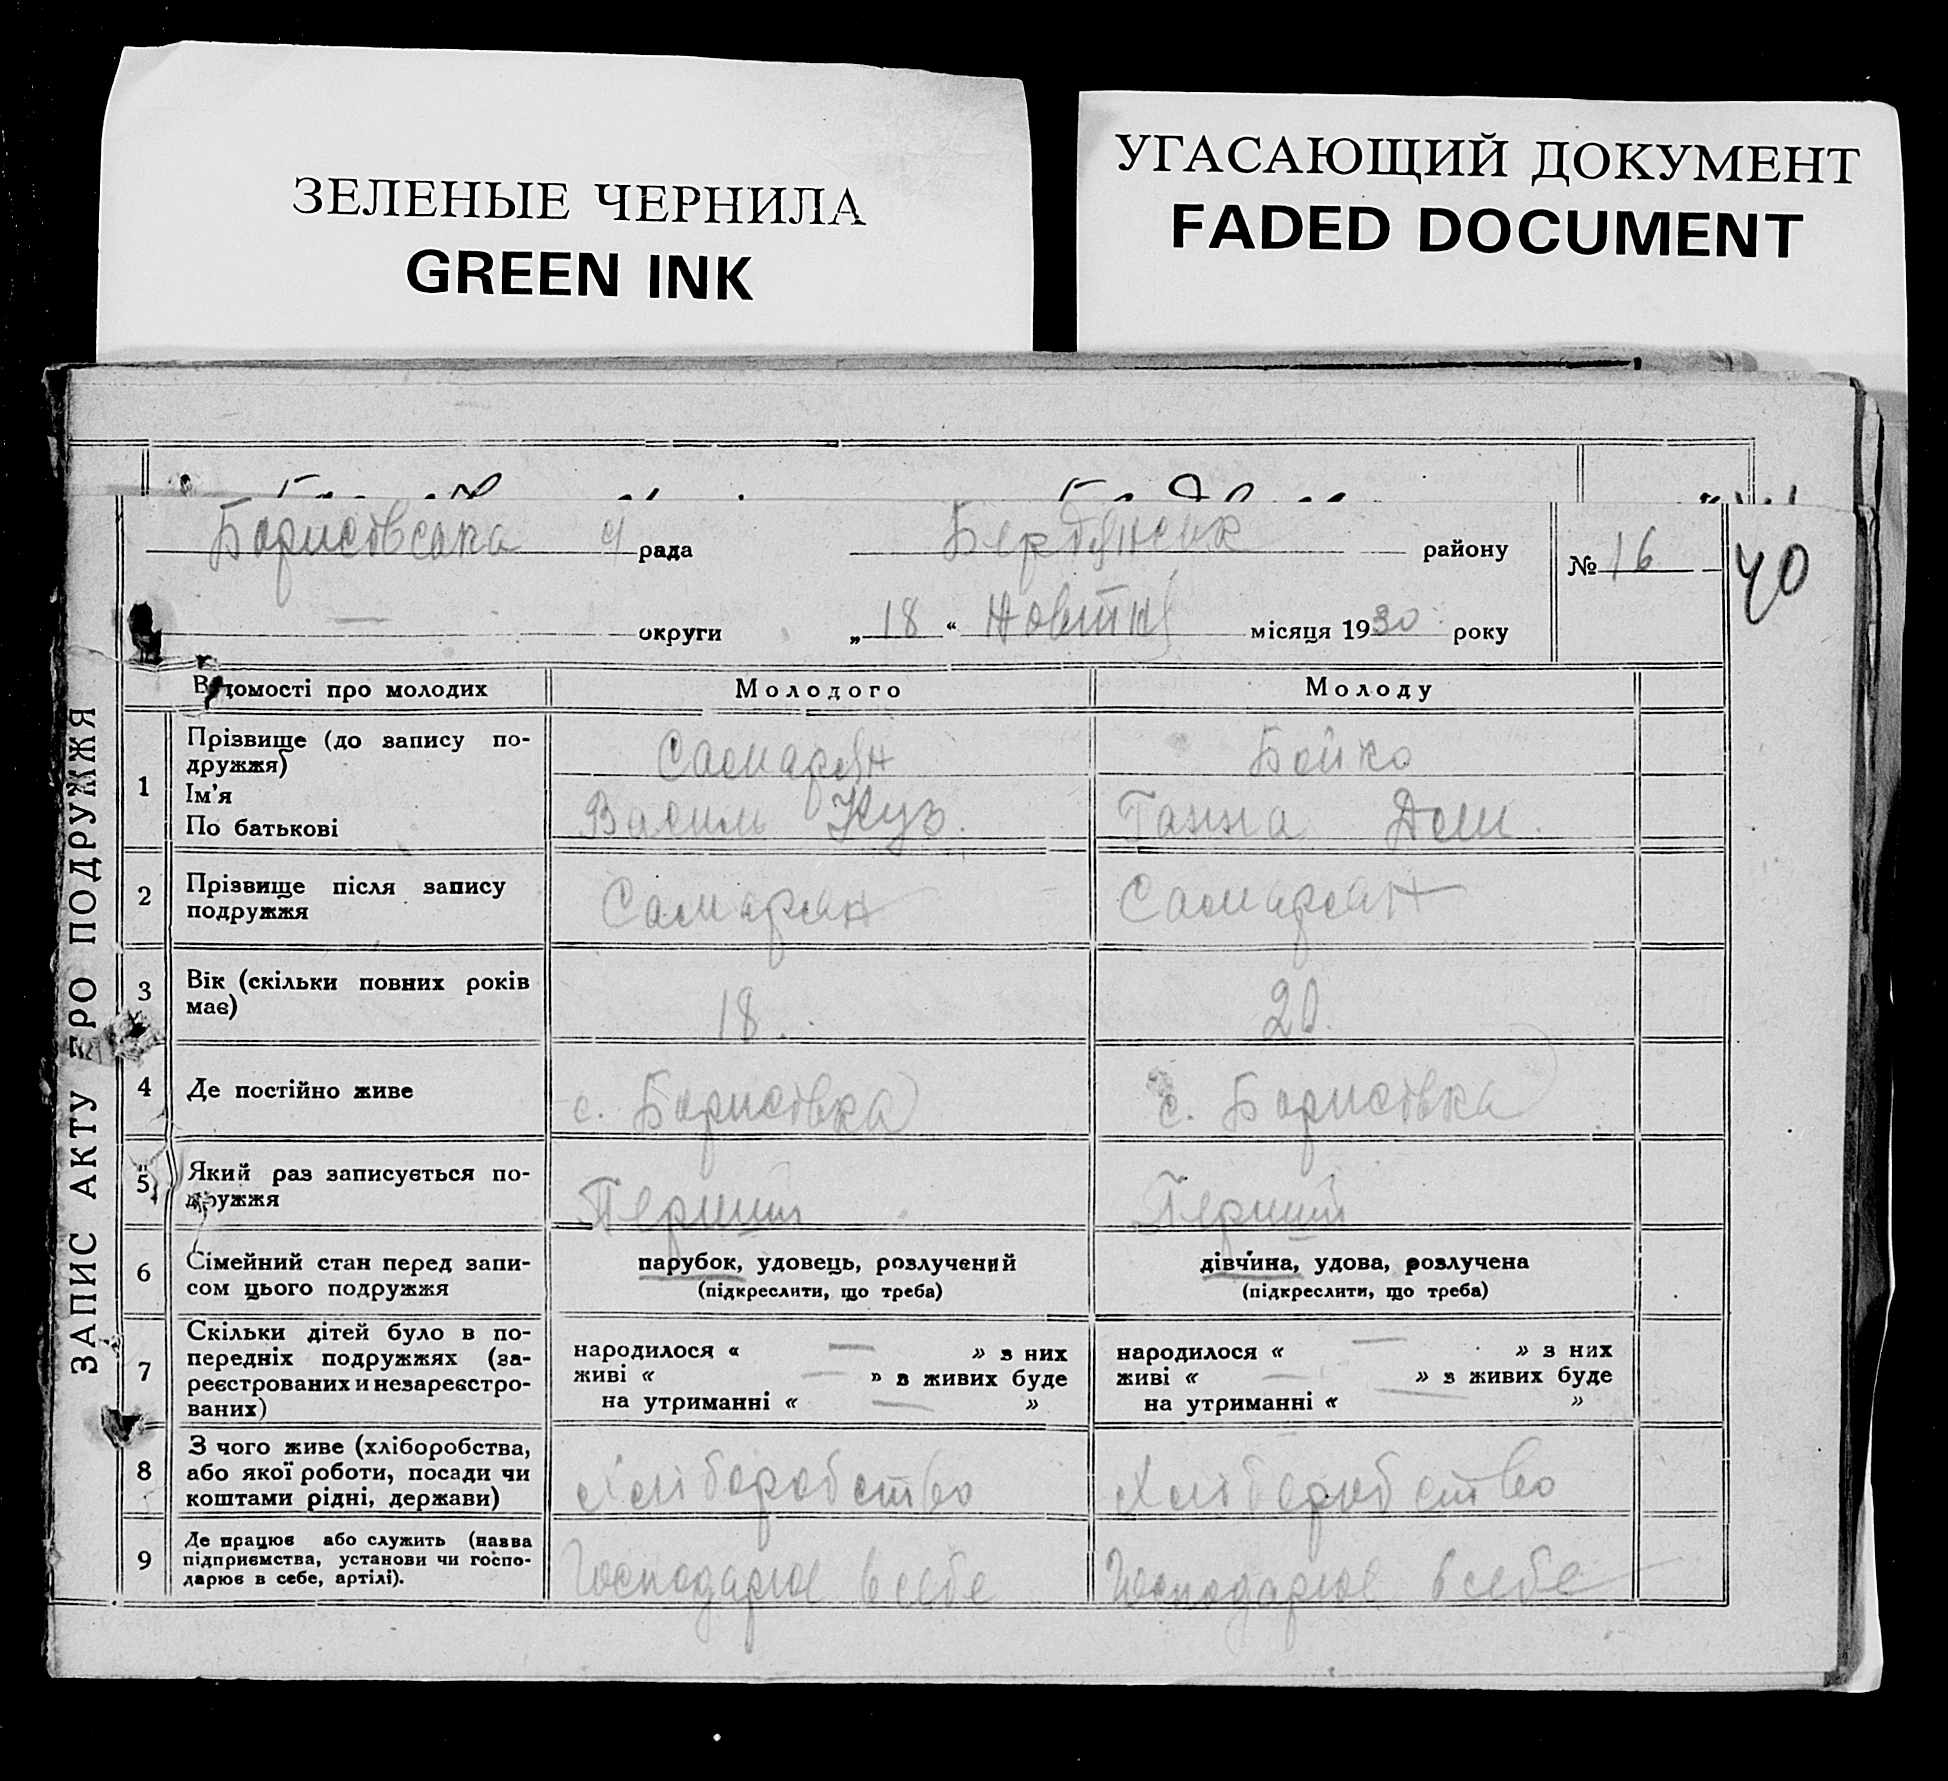 ЗЕЛЕНЫЕ ЧЕРНИЛА
GREEN INK
УГАСАЮЩИЙ ДОКУМЕНТ
FADED DOCUMENT
Борисовська с/рада Бердянськ району
№ 16
40
— округи „18“ Жовтня місяця 1930 року
ЗАПИС АКТУ ПРО ПОДРУЖЖЯ
Відомості про молодих
Молодого
Молоду
1
Прізвище (до запису по-
дружжя)
Ім'я
По батькові
Самарян
Василь Куз.
Бойко
Ганна Дем.
2
Прізвище після запису
подружжя
Самарян
Самарян
3
Вік (скільки повних років
має)
18.
20.
4
Де постійно живе
с. Борисовка
с. Борисовка
5
Який раз записується по-
дружжя
Перший
Перший
6
Сімейний стан перед запи-
сом цього подружжя
парубок, удовець, розлучений
(підкреслити, що треба)
дівчина, удова, розлучена
(підкреслити, що треба)
7
Скільки дітей було в по-
передніх подружжях (за-
реєстрованих и незареєстро-
ваних)
народилося « — » з них
живі « — » з живих буде
на утриманні « — »
народилося « — » з них
живі « — » з живих буде
на утриманні « — »
8
З чого живе (хліборобства,
або якої роботи, посади чи
коштами рідні, держави)
Хліборобство
Хліборобство
9
Де працює або служить (назва
підприємства, установи чи госпо-
дарює в себе, артілі).
Господарює в себе
Господарює в себе